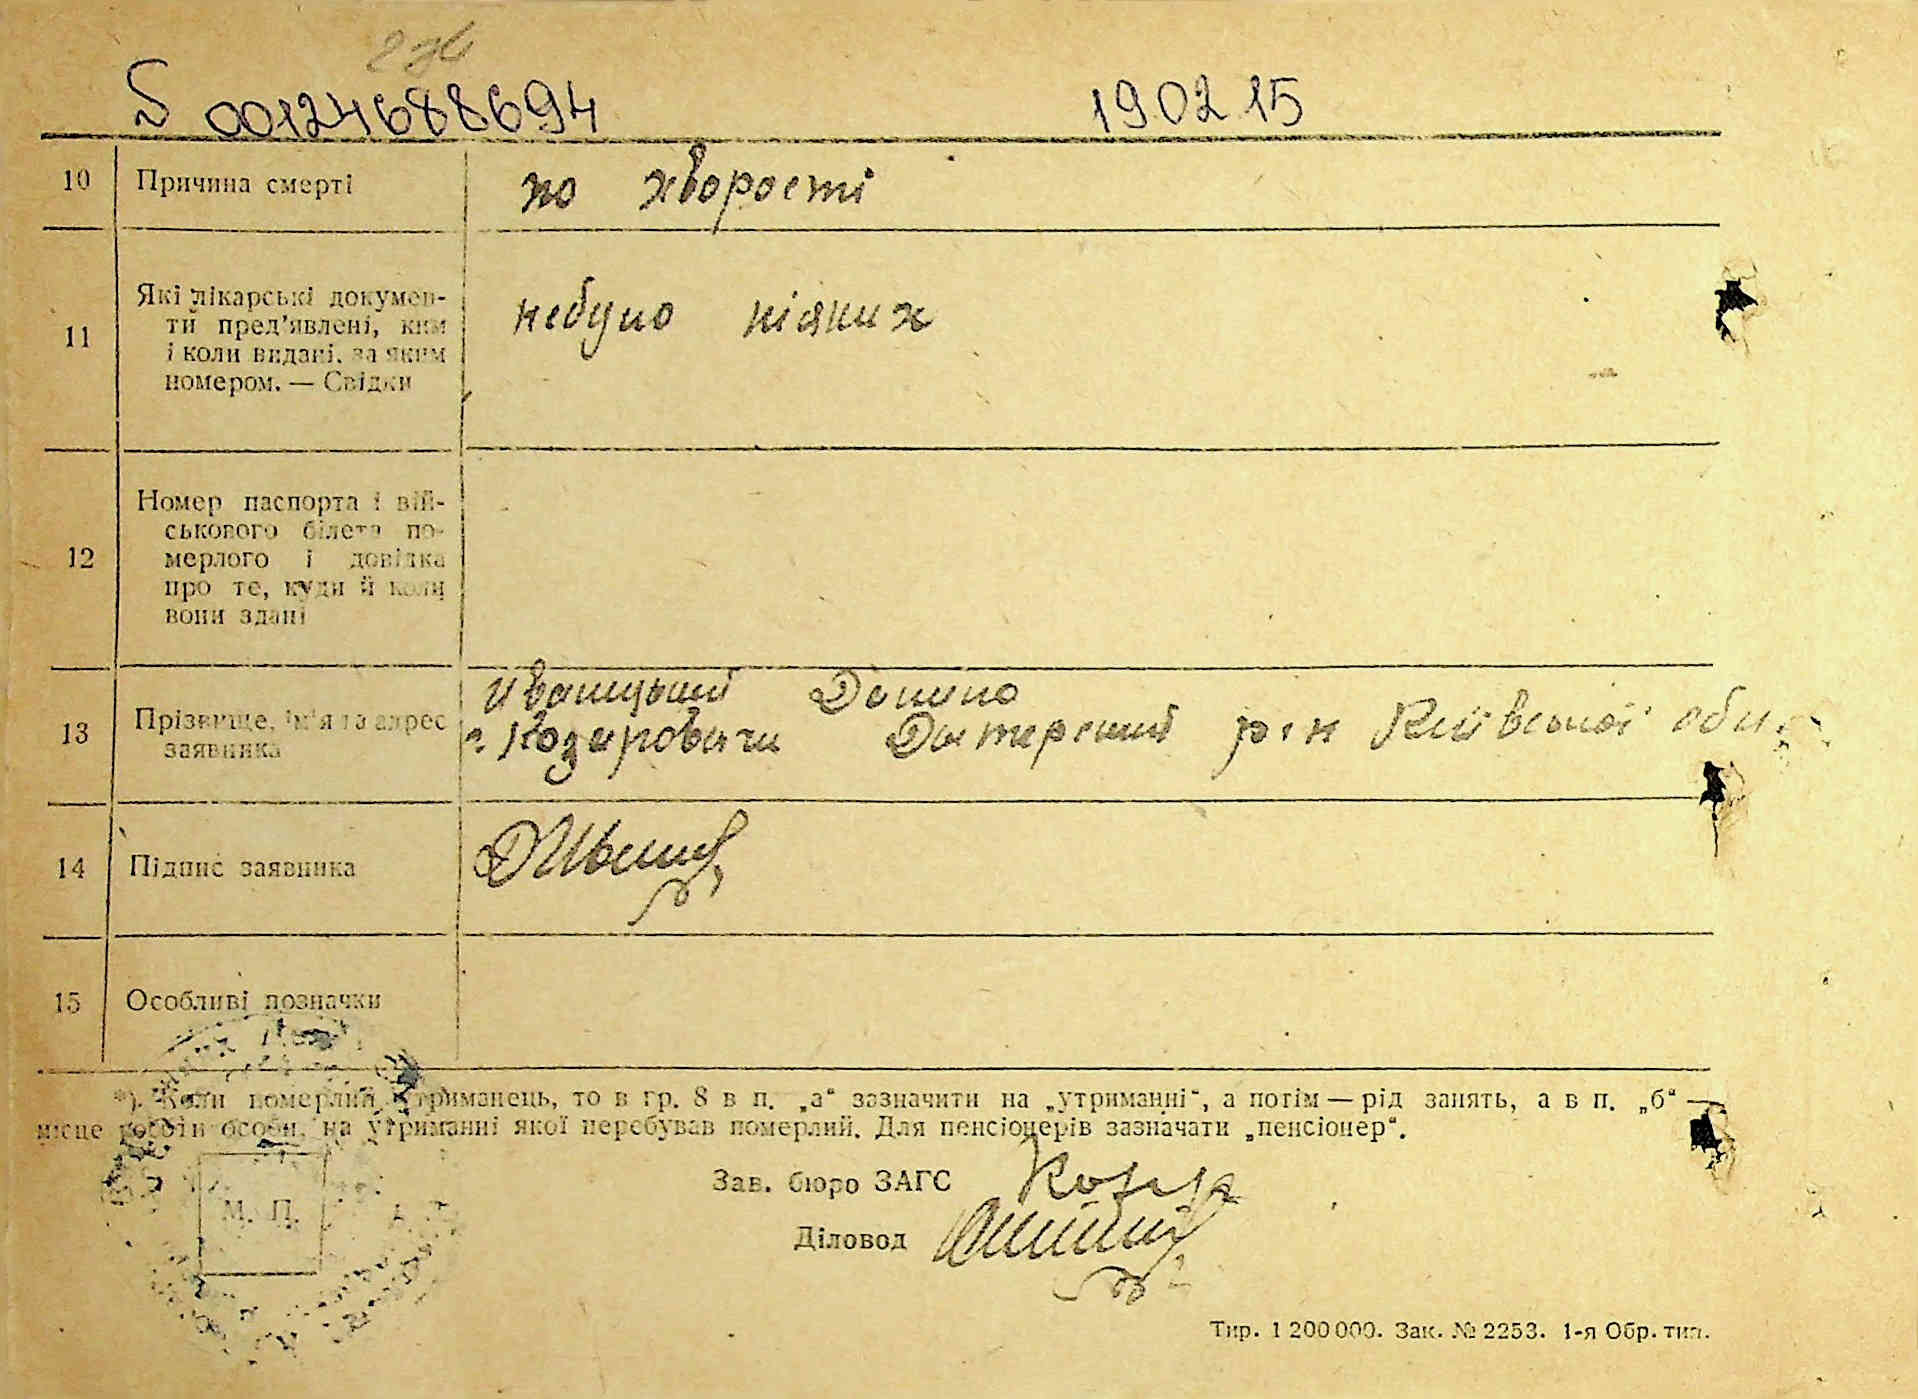 S 00124688694 19.02.15
10 Причина смерті по хворості
11 Які лікарські докумен-
ти пред'явлені, ким
і коли видані, за яким
номером. — Свідки
небуло ніяких
12 Номер паспорта і вій-
ськового білета по-
мерлого і довідка
про те, куди й коли
вони здані
Іваницький Данило
13 Прізвище, ім'я та адрес
заявника
с. Козаровичи Димерский р-н Київської обл.
14 Підпис заявника
15 Особливі позначки
*). Коли померлий утриманець, то в гр. 8 в п. „а“ зазначити на „утриманні“, а потім — рід занять, а в п. „б“ —
місце роботи особи, на утриманні якої перебував померлий. Для пенсіонерів зазначати „пенсіонер“.
Зав. бюро ЗАГС
М. П.
Діловод
Тир. 1 200 000. Зак. № 2253. 1-я Обр. тип.